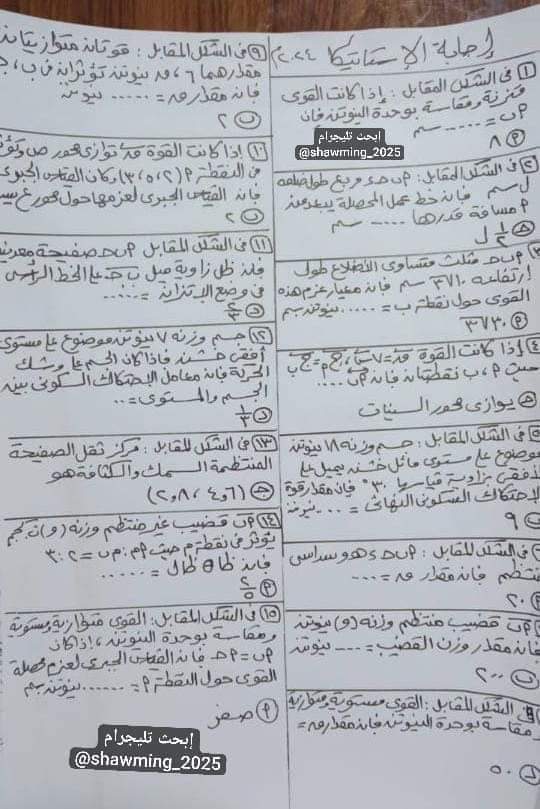 إجابة الإستاتيكا ٢٠٢٤م
① فى الشكل المقابل : إذا كانت القوى
متزنة ومقاسة بوحدة النيوتن فإن
٩ب = ..... سم
٨ ٩
إبحث تليجرام
@shawming_2025
② فى الشكل المقابل : ٩بحء مربع طول ضلعه
ل سم فإن خط عمل المحصلة يبعد عن
٩ مسافة قدرها ..... سم
ل
③ ٩بح مثلث متساوى الأضلاع طول
ارتفاعه سم فإن معيار عزم هذه
القوى حول نقطة ب = ..... نيوتن.سم
④ إذا كانت القوة
حيث ٩ ، ب نقطتان فإن ٩ب ....
يوازى محور السينات
⑤ فى الشكل المقابل : جسم وزنه ١٨ نيوتن
موضوع على مستوى مائل خشن يميل على
الأفقى بزاوية قياسها ٣٠° فإن مقدار قوة
الإحتكاك السكونى النهائى = .... نيوتن
٩
فى الشكل المقابل : ٩بحءهو سداسى
منتظم فإن مقدار = ....
٢٠
٩ب قضيب منتظم وزنه (و) نيوتن
فإن مقدار وزن القضيب = .... نيوتن
٢٠٠
فى الشكل المقابل : القوى مستوية ومتوازية
ومقاسة بوحدة النيوتن فإن مقدار =
٥٠
⑨ فى الشكل المقابل : قوتان متوازيتان
مقدارهما ٦ ، نيوتن تؤثران فى ب ،
فإن مقدار = ..... نيوتن
٢
⑩ إذا كانت القوة توازى محور ص وتؤثر
فى النقطة ٩ (٢ ، ٥ ، ٣) وكان القياس الجبرى
فإن القياس الجبرى لعزمها حول محور ع
٢
⑪ فى الشكل المقابل ٩بح صفيحة
فإن ظل زاوية ميل على الخط الرأسى
فى وضع الإتزان = .....
⑫ جسم وزنه ٧ نيوتن موضوع على مستوى
أفقى خشن فإذا كان الجسم على وشك
الحركة فإن معامل الإحتكاك السكونى بين
الجسم والمستوى = ...
⑬ فى الشكل المقابل : مركز ثقل الصفيحة
المنتظمة السمك والكثافة هو
⑭ ٩ب قضيب غير منتظم وزنه (و) ث.كجم
يؤثر فى نقطة م حيث ٩م : م ب = ٢ : ٣
فإن ظا θ ظا ل = .....
٢/٥
⑮ فى الشكل المقابل : القوى متوازية ومستوية
ومقاسة بوحدة النيوتن ، إذا كان
٩ب = ٩ح فإن القياس الجبرى لعزم محصلة
القوى حول النقطة ٩ = ..... نيوتن.سم
٩ صفر
إبحث تليجرام
@shawming_2025